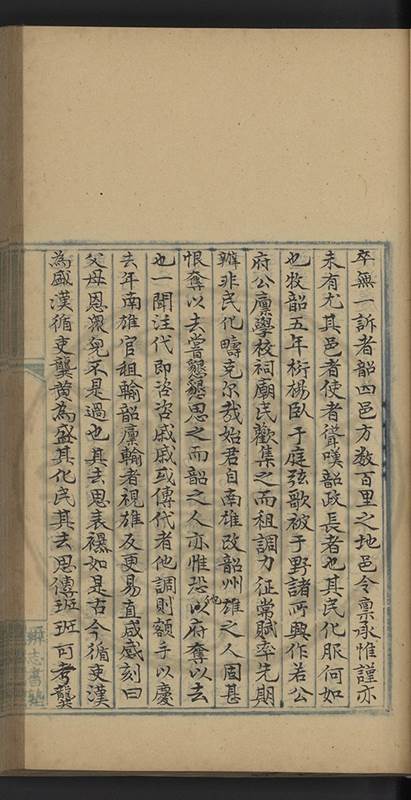 卒無一訴者韶四邑方数百里之地邑令禀承惟謹亦
未有尤其邑者使者聳嘆韶政長者也其民化服何如
也牧韶五年桁楊臥于庭弦歌被于野諸所興作若公
府公廪學校祠廟民歡集之而租調力征常賦率先期
辦非民化疇克尔哉始君自南雄改韶州雄之人固甚
恨奪以去嘗懇懇思之而韶之人亦惟恐他府奪以去
也一聞注代即咨咨戚戚或傳代者他調則額手以慶
去年南雄官租輸韶廪輸者視雄反更易直咸感刻曰
父母恩衆皃不是過也其去思表襮如是古今循吏漢
為盛漢循吏龔黄為盛其化民其去思傳班班可考龔